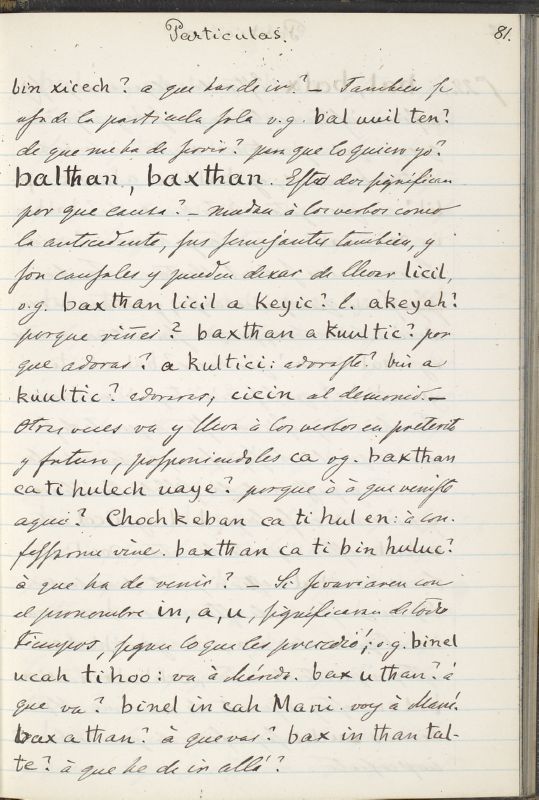 Particulas. 81.
bin xicech? a que has de ir? – Tambien se
usa de la particula sola v.g. bal uuil ten?
de que me ha de servir? para que lo quiero yo?
balthan, baxthan. Estas dos significan
por que causa? – mudan à los verbos como
la antecedente, sus semejantes tambien, y
son causales y pueden dexar de llevar licil,
v.g. baxthan licil a keyic? l. akeyah?
porque riñes? baxthan a kuultic? por
que adoras? a kultici: adoraste? bin a
kuultic? adoraras, cicin al demonio. –
Otras veces va y lleva à los verbos en preterito
y futuro, posponiendoles ca vg. baxthan
ca ti hulech uaye? porque ò à que veniste
aqui? Chochkeban ca ti hul en: à con-
fessarme vine. baxthan ca ti bin huluc?
à que ha de venir? – Si se variaren con
el pronombre in, a, u, significaran de todos
tiempos, segun lo que les precedió; v.g. binel
ucah tihoo: va à Mérida. bax u than? à
que va? binel in cah Mani. voy à Maní.
bax a than? à que vas? bax in than tal-
te? à que he de ir allá?